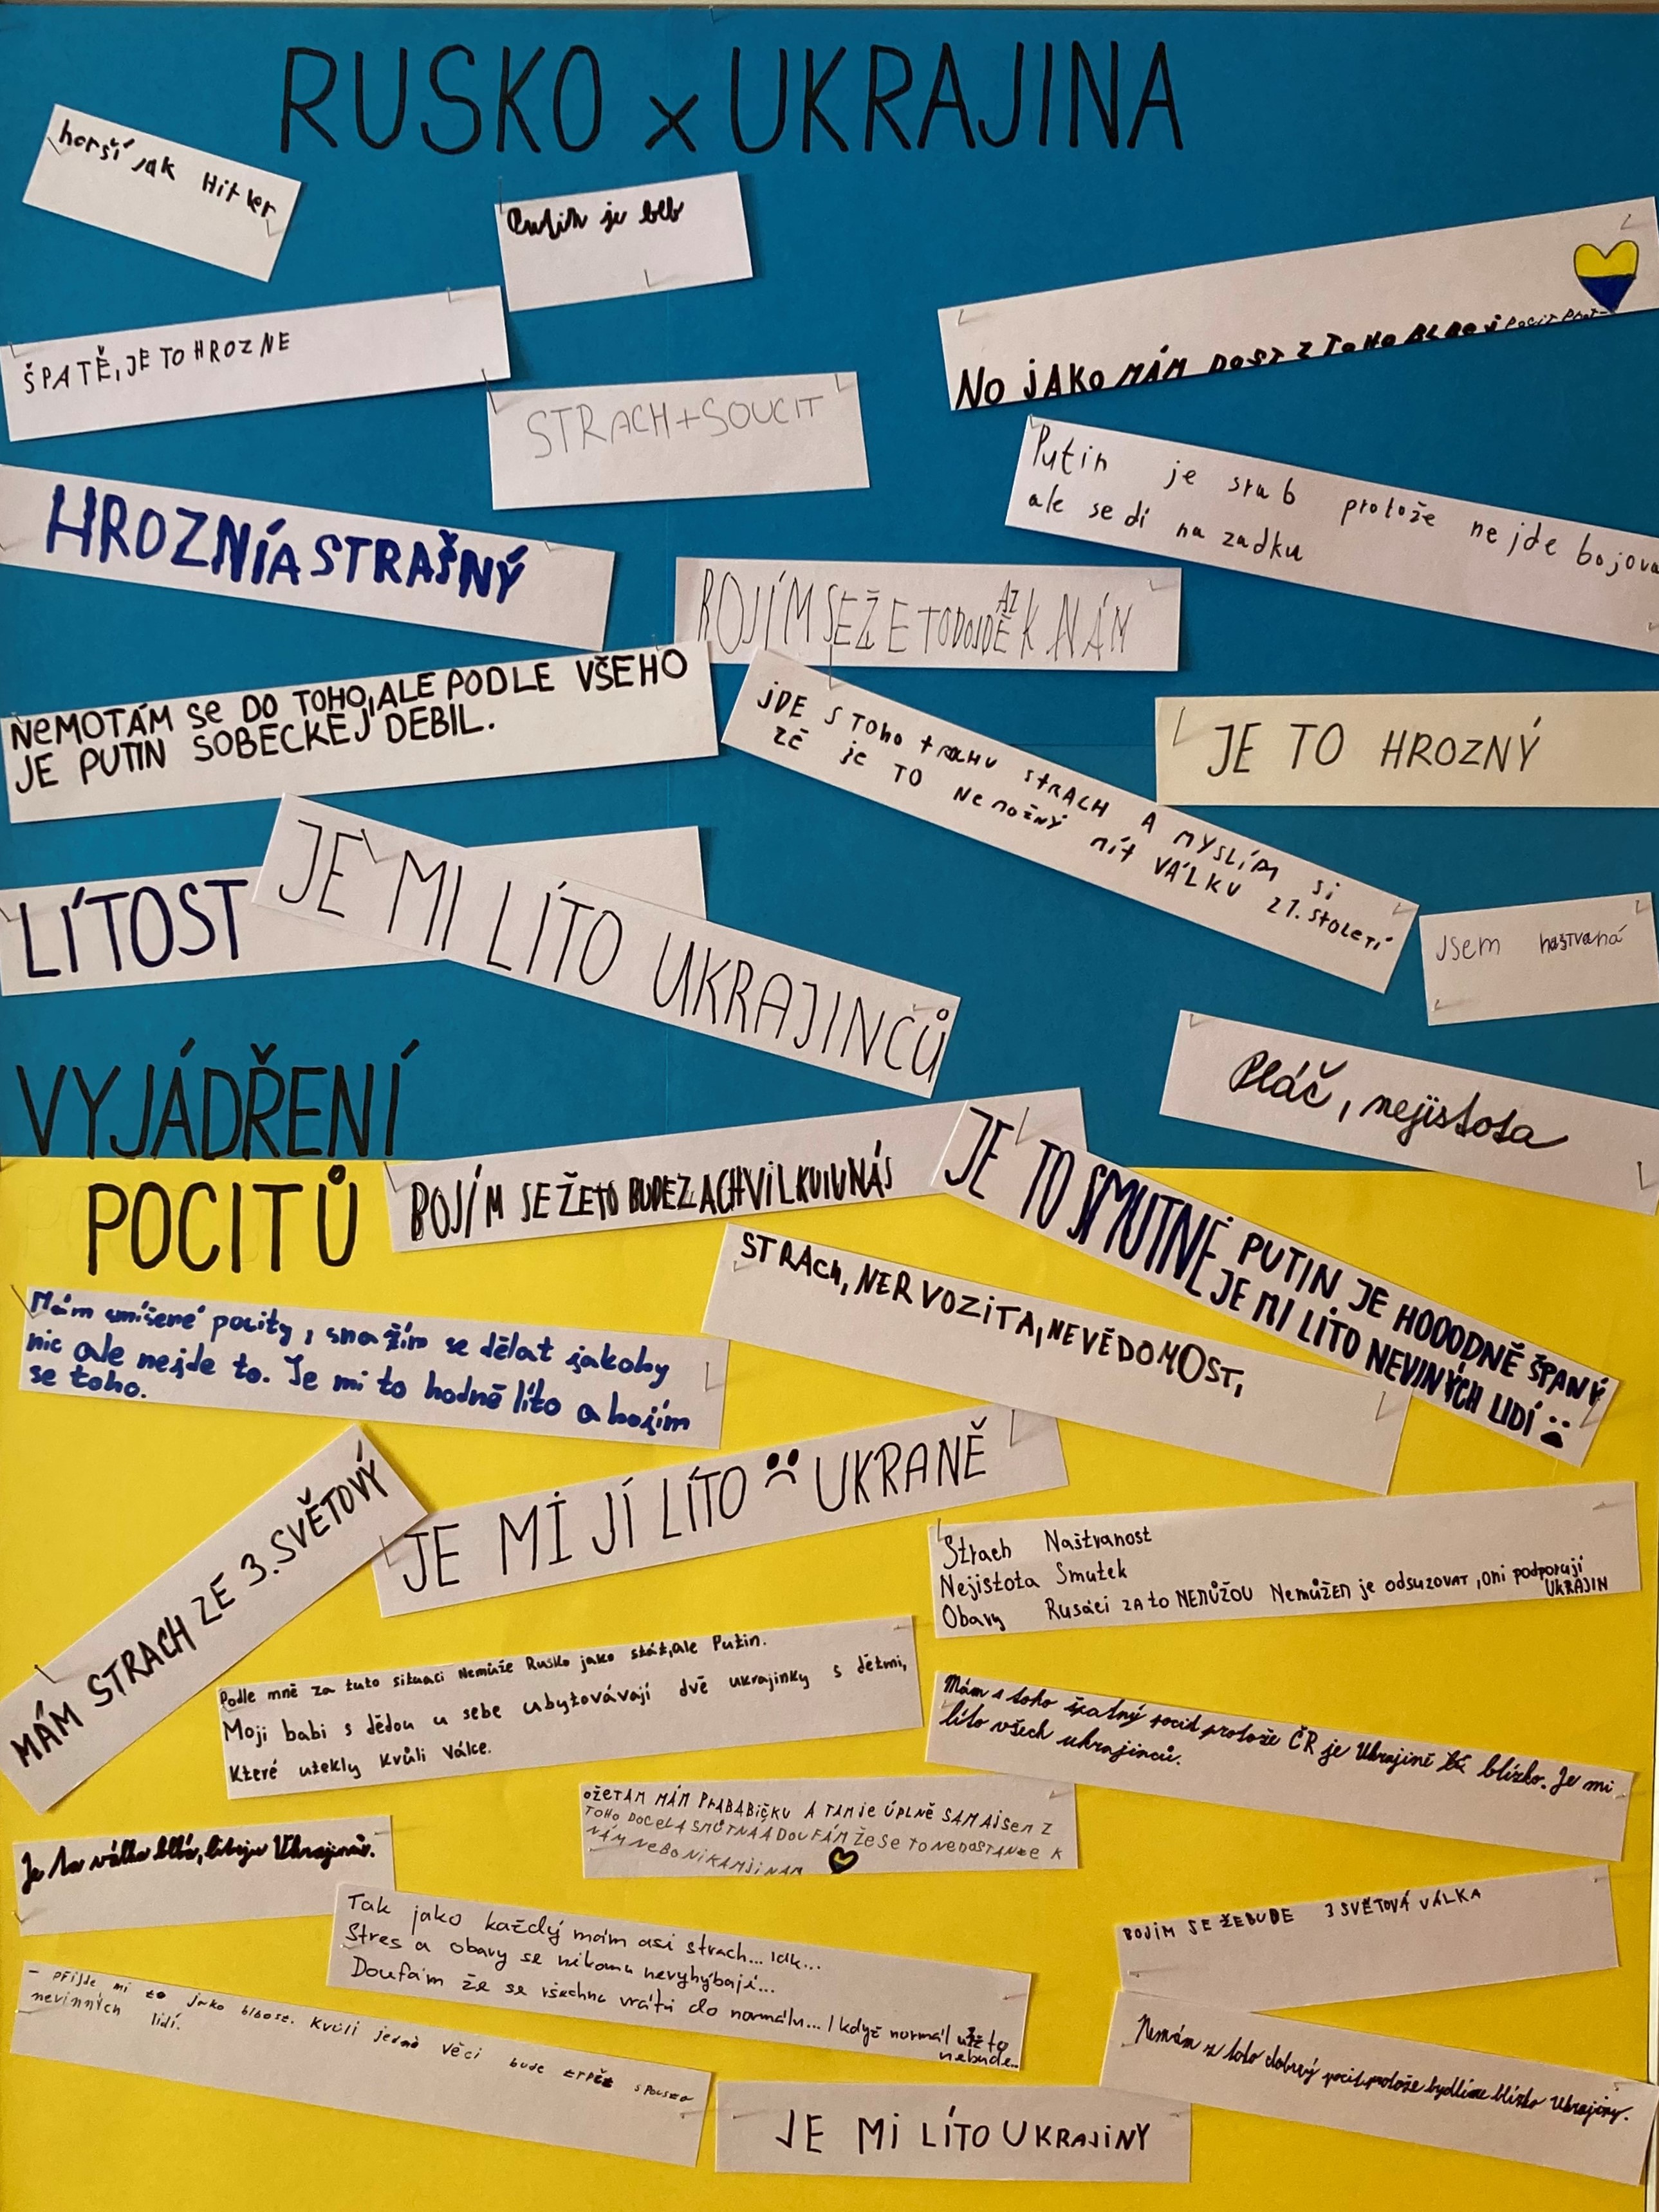 RUSKO x UKRAJINA
horší jak Hitler
Putin je blb
ŠPATĚ, JE TO HROZNE
NO JAKO MÁM DOST Z TOHO BLBOJ POCIT
STRACH+SOUCIT
Putin je srab protože nejde bojova
ale sedí na zadku
HROZNÍ A STRAŠNÝ
BOJÍM SE ŽE TO DOJDE AŽ K NÁM
NEMOTÁM SE DO TOHO, ALE PODLE VŠEHO
JE PUTIN SOBECKEJ DEBIL.
JDE S TOHO trochu STRACH A MYSLÍM SI
ZE je TO NemoŽNÝ mít VÁLKU 21. Století
JE TO HROZNÝ
LÍTOST
JE MI LÍTO UKRAJINCŮ
Jsem naštvaná
Pláč, nejistota
VYJÁDŘENÍ
POCITŮ
BOJÍM SE ŽE TO BUDE ZACHVILKU I U NÁS
JE TO SMUTNÉ PUTIN JE HOOODNĚ ŠPANÝ
JE MI LÍTO NEVINÝCH LIDÍ :(
STRACH, NERVOZITA, NEVĚDOMOST,
Mám smíšené pocity, snažím se dělat jakoby
nic ale nejde to. Je mi to hodně líto a bojím
se toho.
MÁM STRACH ZE 3. SVĚTOVÝ
JE MI JÍ LÍTO :( UKRANĚ
Strach Naštvanost
Nejistota Smutek
Obavy Rusáci ZA to NEMŮŽOU NemůŽEM je odsuZOVAT, oni podporují
UKRAJIN
Podle mně za tuto situaci nemůže Rusko jako stát, ale Putin.
Moji babi s dědou u sebe ubytovávají dvě ukrajinky s dětmi,
které utekly kvůli válce.
Mám s toho špatný pocit protože ČR je Ukrajině blízko. Je mi
líto všech ukrajinců.
OŽE TAM MÁM PRABABIČKU A TAM JE ÚPLNĚ SAMA JSEM Z
TOHO DOCELA SMŮTNÁ A DOUFÁM ŽE SE TO NEDOSTANDE K
NÁM NEBO NIKAM JINAM
Je to válka blbá, lituju Ukrajince.
Tak jako každý mám asi strach... idk...
Stres a obavy se nikomu nevyhýbají...
Doufám že se všechno vrátí do normálu... I když normál už to
nebude...
BOJÍM SE ŽE BUDE 3 SVĚTOVÁ VÁLKA
- přijde mi to jako blbost. Kvůli jedné věci bude trpět spousta
nevinných lidí.
Nemám z toho dobrý pocit protože bydlíme blízko Ukrajiny.
JE MI LÍTO UKRAJINY